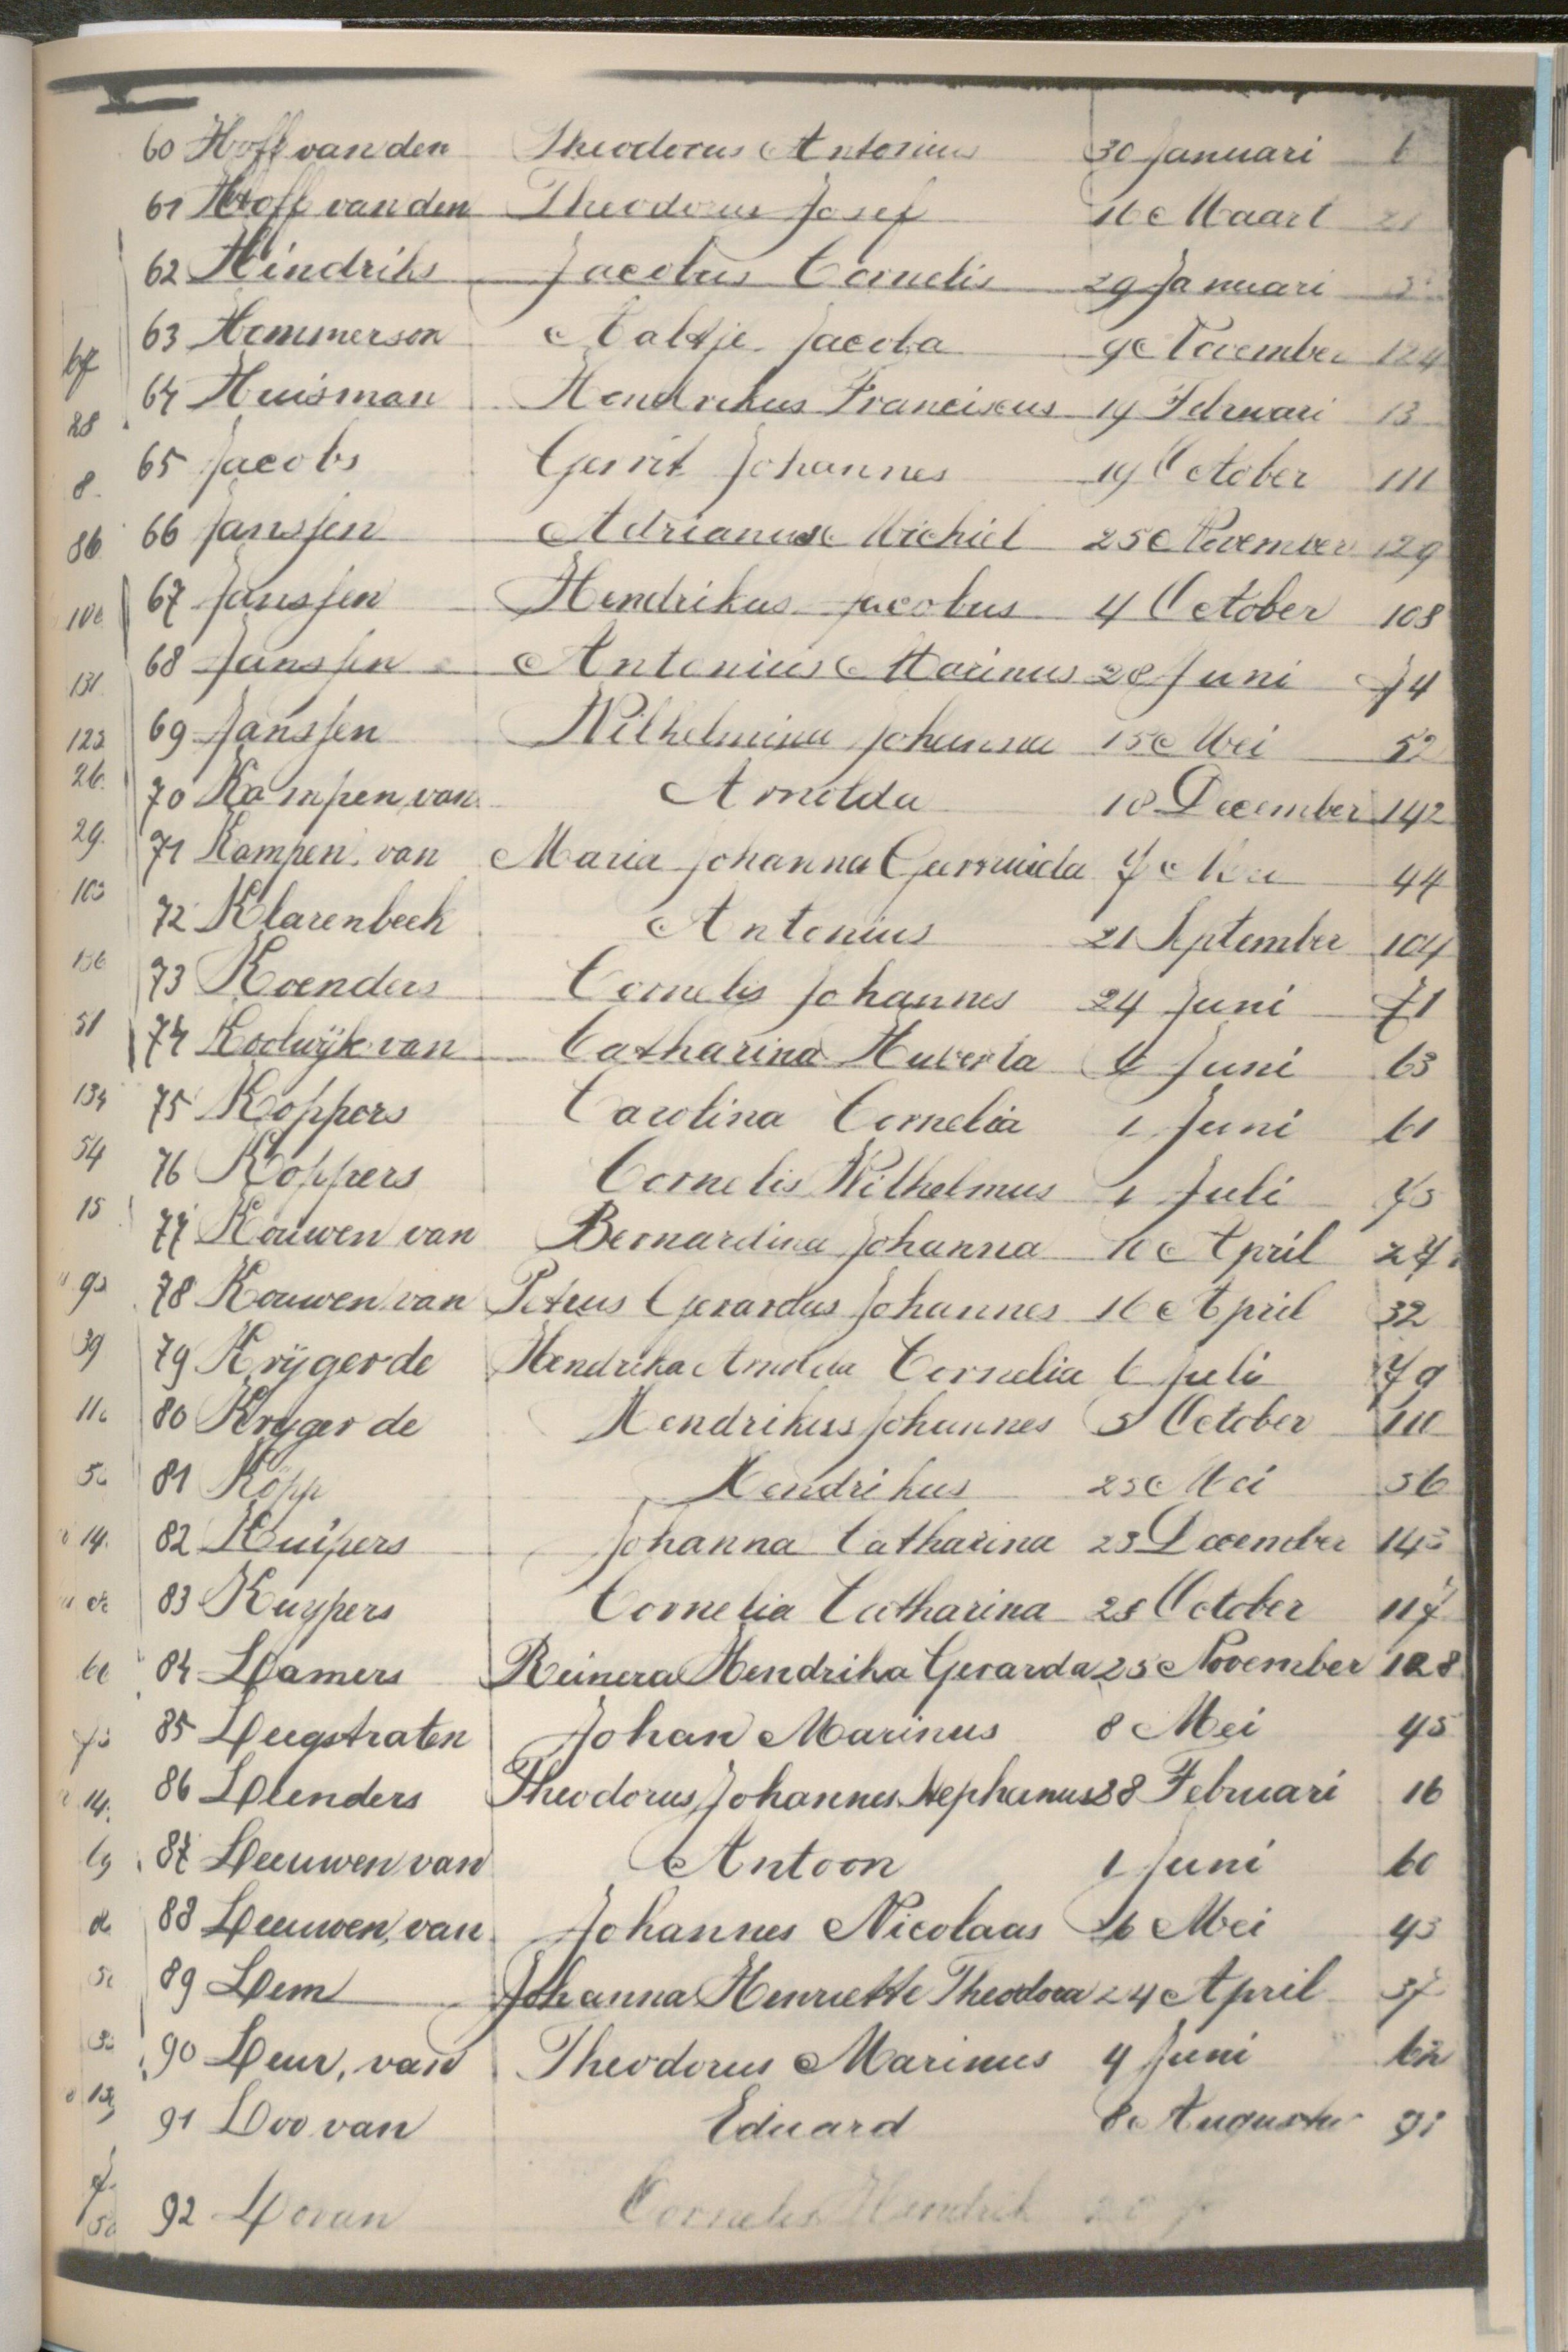 60 Hoff van den Theodorus Antonius 30 Januari 6
61 Hoff van den Theodorus Josef 16 Maart 21
62 Hindriks Jacobus Cornelis 29 Januari
63 Hommerson Aaltje Jacoba 9 November 124
64 Huisman Hendrikus Franciscus 19 Februari 13
28
65 Jacobs Gerrit Johannes 19 October 111
8
66 Janssen Adrianus Michiel 25 November 129
86
67 Janssen Hendrikus Jacobus 4 October 108
68 Janssen Antonius Marinus 28 Juni 74
131
69 Janssen Wilhelmina Johanna 15 Mei 52
123
26
70 Kampen van Arnolda 18 December 142
29
71 Kampen van Maria Johanna 7 Mei 44
103
72 Klarenbeek Antonius 21 September 104
73 Koenders Cornelis Johannes 24 Juni 71
51
74 Kodwijk van Catharina Huberta 6 Juni 63
134
75 Koppers Carolina Cornelia 1 Juni 61
54
76 Koppers Cornelis Wilhelmus 1 Juli 75
15
77 Kouwen van Bernardina Johanna 10 April 27
78 Kouwen van Petrus Gerardus Johannes 16 April 32
39
79 Krijger de Hendrika Arnolda Cornelia 6 Juli 79
80 Kryger de Hendrikus Johannes 5 October 110
81 Köpp Hendrikus 25 Mei 56
14
82 Kuipers Johanna Catharina 23 December 143
83 Kuypers Cornelia Catharina 28 October 117
84 Lamers Reinera Hendrika Gerarda 25 November 128
85 Leegstraten Johan Marinus 8 Mei 45
86 Leenders Theodorus Johannes Stephanus 28 Februari 16
14
87 Leeuwen van Antoon 1 Juni 60
88 Leeuwen, van Johannes Nicolaas 6 Mei 43
89 Lem Johanna Henriette Theodora 24 April 37
90 Leur, van Theodorus Marinus 4 Juni 62
91 Loo van Eduard 8 Augustus 91
92 Cornelis Hendrik